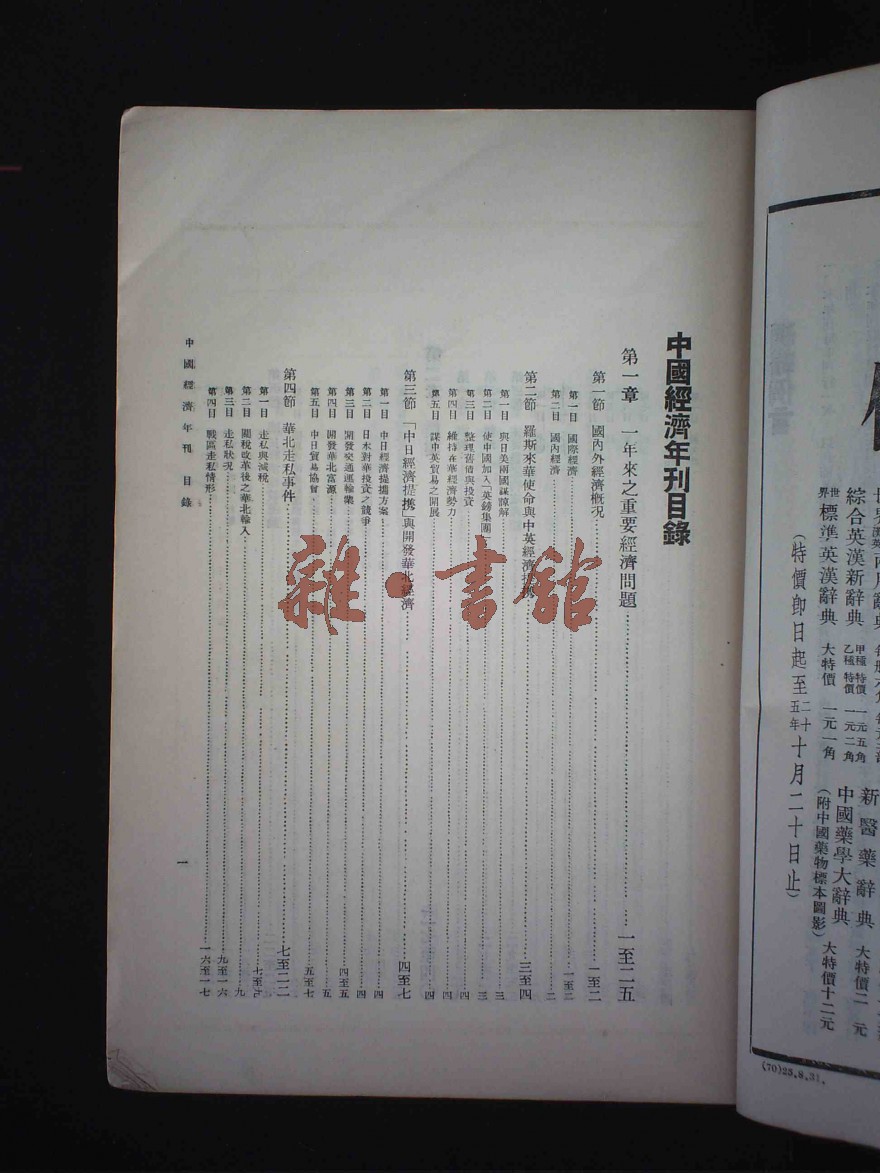 中國經濟年刊目錄
第一章　一年來之重要經濟問題……一至二五
第一節　國內外經濟概況……一至二
第一目　國際經濟……一至二
第二目　國內經濟……二
第二節　羅斯來華使命與中英經濟……三至四
第一目　與日美兩國謀諒解……三
第二目　使中國加入「英鎊集團」……三
第三目　整理舊債與投資……四
第四目　維持在華經濟勢力……四
第五目　謀中英貿易之開展……四
第三節　「中日經濟提携」與開發華北經濟……四至七
第一目　中日經濟提攜方案……四
第二目　日本對華投資之競爭……四
第三目　開發交通運輸業……四至五
第四目　開發華北富源……五
第五目　中日貿易協會……五至七
第四節　華北走私事件……七至二二
第一目　走私與減稅……七至九
第二目　關稅改革後之華北輸入……九
第三目　走私狀況……九至一六
第四目　戰區走私情形……一六至一七
中國經濟年刊　目錄
一
雜·書館
綜合英漢新辭典　甲種特價　一元五角　乙種特價　一元二角
世界標準英漢辭典　大特價　一元一角
(特價即日起至二十五年十月二十日止)
新醫藥辭典　大特價二元
中國藥學大辭典　大特價十二元
(附中國藥物標本圖影)
(70)25.8.31.